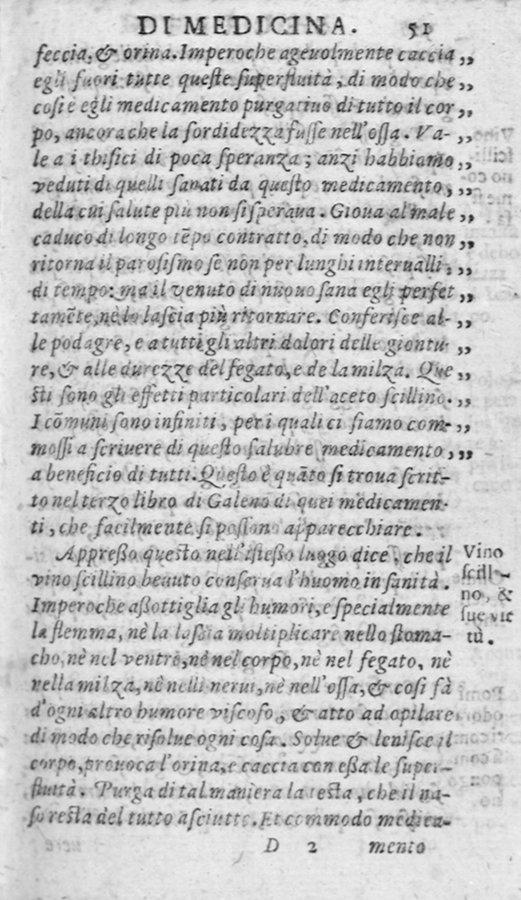 DI MEDICINA. 51
feccia, & orina. Imperoche ageuolmente caccia „
egli fuori tutte queste superfluità, di modo che „
cosi è egli medicamento purgatiuo di tutto il cor „
po, ancora che la sordidezza fusse nell'ossa. Va- „
le a i thisici di poca speranza; anzi habbiamo „
veduti di quelli sanati da questo medicamento, „
della cui salute più non si speraua. Gioua al male „
caduco di longo tẽpo contratto, di modo che non „
ritorna il parosismo se non per lunghi interualli „
di tempo: ma il venuto di nuouo sana egli perfet „
tamẽte, nè lo lascia più ritornare. Conferisce al- „
le podagre, e a tutti gli altri dolori delle giontu- „
re, & alle durezze del fegato, e de la milza. Que „
sti sono gli effetti particolari dell'aceto scillino. „
I cõmuni sono infiniti, per i quali ci siamo com- „
mossi a scriuere di questo salubre medicamento, „
a beneficio di tutti. Questo è quãto si troua scrit-
to nel terzo libro di Galeno di quei medicamen-
ti, che facilmente si possono apparecchiare.
Appreßo questo nell'isteßo luogo dice, che il
vino scillino beauto conserua l'huomo in sanità.
Imperoche aßottiglia gli humori, e specialmente
la flemma, nè la lascia moltiplicare nello stoma-
cho, nè nel ventre, nè nel corpo, nè nel fegato, nè
nella milza, nè nelli nerui, nè nell'ossa, & cosi fà
d'ogni altro humore viscoso, & atto ad opilare
di modo che risolue ogni cosa. Solue & lenisce il
corpo, prouoca l'orina, e caccia con eßa le super-
fluità. Purga di tal maniera la testa, che il na-
so resta del tutto asciutto. Et commodo medica-
D 2 mento
Vino
scilli-
no, &
sue vir
tù.